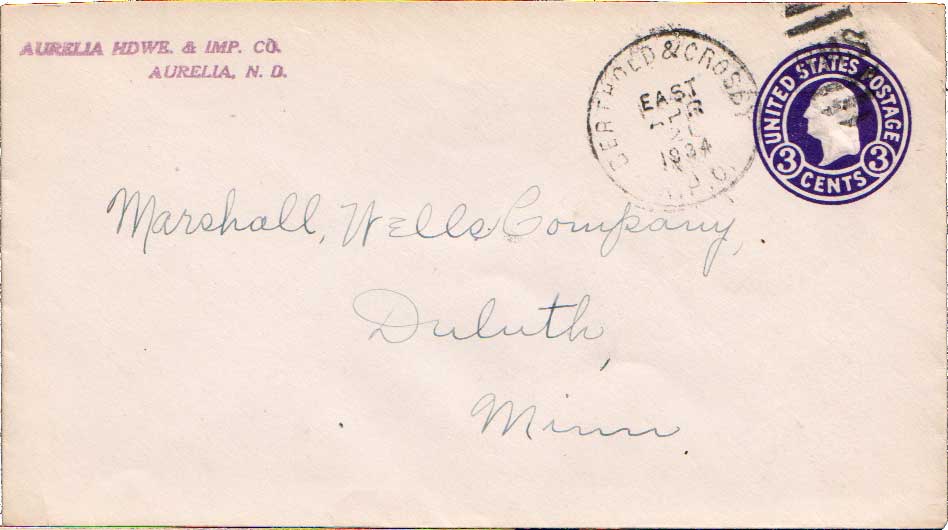 AURELIA HDWE. & IMP. CO.
AURELIA, N. D.
& CROSBY
EAST
1934
UNITED STATES POSTAGE
3 CENTS 3
Marshall, Wells Company,
Duluth,
Minn